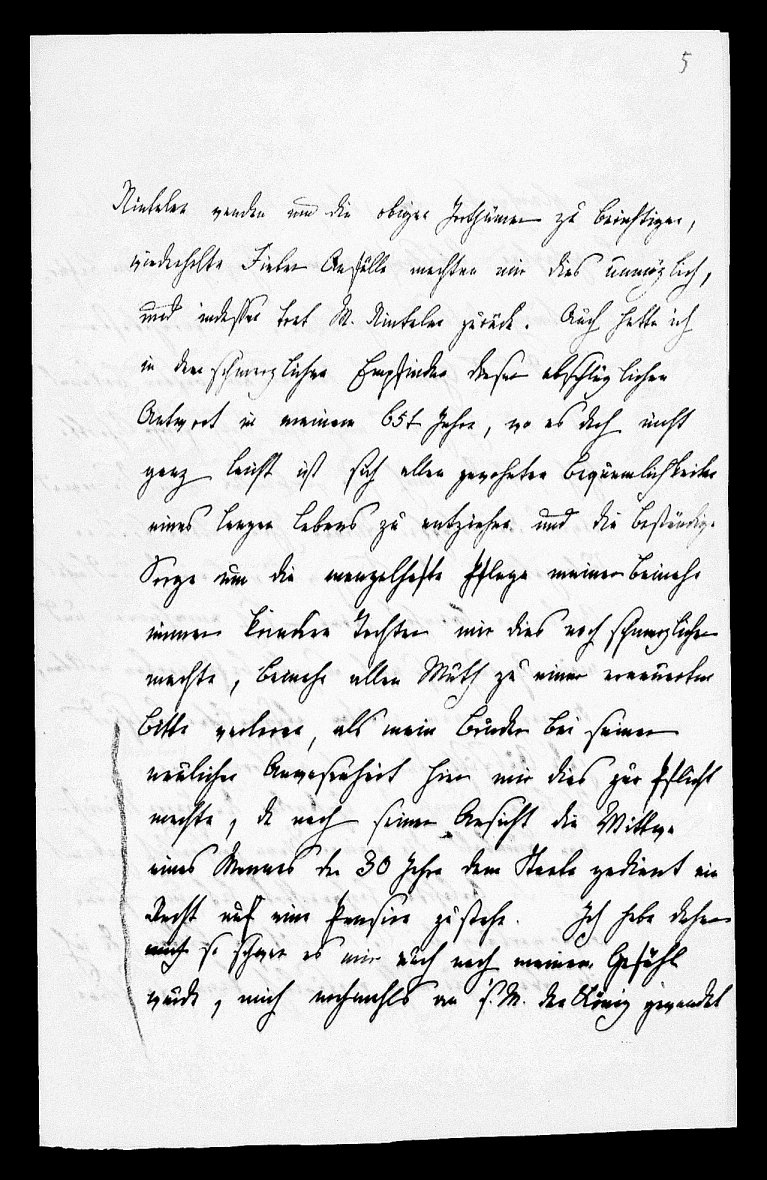 5
Minister wenden um die obigen Irrthümer zu berichtigen,
wiederholte Fieber Anfälle machten mir dies unmöglich,
und indessen trat M. Minister zurück. Auch hatte ich
in dem schmerzlichen Empfinden dieser abschläglichen
Antwort in meinem 65t Jahre, wo es doch nicht
ganz leicht ist sich allen gewohnten Bequemlichkeiten
eines langen Lebens zu entziehen und die beständige
Sorge um die mangelhafte Pflege meiner beinahe
immer kranken Tochter mir dies noch schmerzlicher
machte, beinahe allen Muth zu einer erneuerten
Bitte verloren, als mein Bruder bei seiner
neulichen Anwesenheit hier mir dies zur Pflicht
machte, da nach seiner Ansicht die Wittwe
eines Mannes der 30 Jahre dem Staate gedient ein
Recht auf eine Pension zustehe. Ich habe daher
so schwer es mir auch nach meinem Gefühl
wurde, mich nochmahls an S. M. den König gewendet